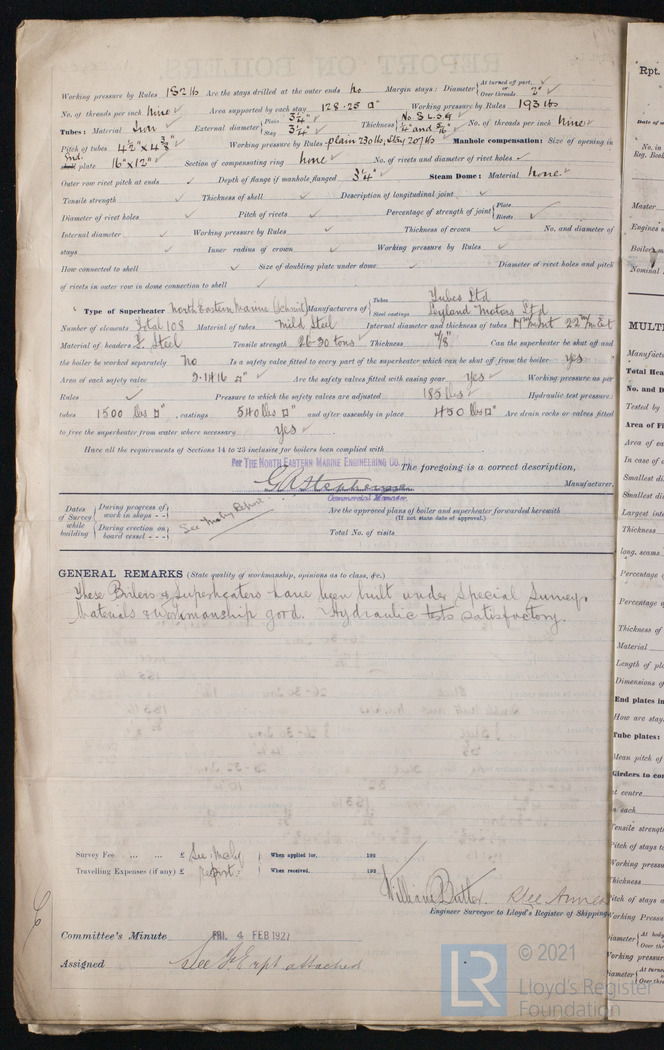 Working pressure by Rules 182 lb Are the stays drilled at the outer ends No Margin stays: Diameter { At turned off part, ✓ or Over threads 2" ✓
No. of threads per inch Nine ✓ Area supported by each stay 128.25 □" Working pressure by Rules 193 lbs
Tubes: Material Iron ✓ External diameter { Plain 3¼" Stay 3¼" ✓ Thickness { No 8 L.S.G ✓ ¼" and 5/16" No. of threads per inch Nine ✓
Pitch of tubes 4½" x 4⅜" Working pressure by Rules plain 230 lb, Stay 207 lb Manhole compensation: Size of opening in
End plate 16" x 12" ✓ Section of compensating ring None ✓ No. of rivets and diameter of rivet holes ✓
Outer row rivet pitch at ends ✓ Depth of flange if manhole flanged 3¼" ✓ Steam Dome: Material None ✓
Tensile strength ✓ Thickness of shell ✓ Description of longitudinal joint ✓
Diameter of rivet holes ✓ Pitch of rivets ✓ Percentage of strength of joint { Plate Rivets ✓
Internal diameter ✓ Working pressure by Rules ✓ Thickness of crown ✓ No. and diameter of
stays ✓ Inner radius of crown ✓ Working pressure by Rules ✓
How connected to shell ✓ Size of doubling plate under dome ✓ Diameter of rivet holes and pitch
of rivets in outer row in dome connection to shell ✓
Type of Superheater North Eastern Marine (Schmidt) Manufacturers of { Tubes Tubes Ltd Steel castings Leyland Motors Ltd
Number of elements Total 108 Material of tubes Mild Steel Internal diameter and thickness of tubes
Material of headers Steel Tensile strength 26-30 tons ✓ Thickness ⅞" Can the superheater be shut off and
the boiler be worked separately No Is a safety valve fitted to every part of the superheater which can be shut off from the boiler Yes
Area of each safety valve 3.1416 □" ✓ Are the safety valves fitted with easing gear Yes ✓ Working pressure as per
Rules ✓ Pressure to which the safety valves are adjusted 185 lbs ✓ Hydraulic test pressure:
tubes 1500 lbs □" , castings 540 lbs □" and after assembly in place 450 lbs □" Are drain cocks or valves fitted
to free the superheater from water where necessary Yes ✓
Have all the requirements of Sections 14 to 23 inclusive for boilers been complied with
Per THE NORTH EASTERN MARINE ENGINEERING CO. The foregoing is a correct description,
Manufacturer.
Commercial Manager.
Dates of Survey while building { During progress of work in shops - - During erection on board vessel - - - } See Mchy Report
Are the approved plans of boiler and superheater forwarded herewith
(If not state date of approval.)
Total No. of visits
GENERAL REMARKS (State quality of workmanship, opinions as to class, &c.)
These Boilers & Superheaters have been built under Special Survey.
Materials & workmanship good. Hydraulic tests satisfactory.
Survey Fee ... ... £ See Mchy When applied for, 192
Travelling Expenses (if any) £ report. When received, 192
William Butler.
Engineer Surveyor to Lloyd's Register of Shipping
Committee's Minute FRI. 4 FEB 1927
Assigned See rpt attached
© 2021
LR
Lloyd's Register
Foundation
Rpt.
Date of
No. in
Reg. Book
Master
Engines
Boilers
Nominal
MULTI
Manufact
Total Hea
No. and D
Tested by
Area of Fi
Area of ea
In case of
Smallest di
Smallest di
Largest inte
Thickness
long. seams
Percentage
Percentage o
Thickness of
Material
Length of pl
Dimensions of
End plates in
How are stay
Tube plates:
Mean pitch of
Girders to com
at centre
in each
Tensile strengt
Pitch of stays t
Working pressu
Thickness
Pitch of stays a
Working Pressu
Diameter { At body Over
Working pressure
Diameter { At turn Over thr